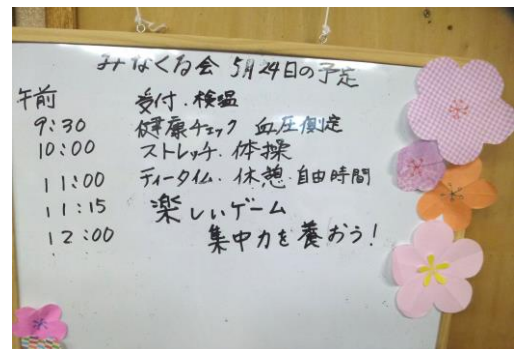 みなくる会 5月24日の予定
午前 受付・検温
9:30 健康チェック 血圧側定
10:00 ストレッチ・体操
11:00 ティータイム・休憩・自由時間
11:15 楽しいゲーム
12:00 集中力を養おう!